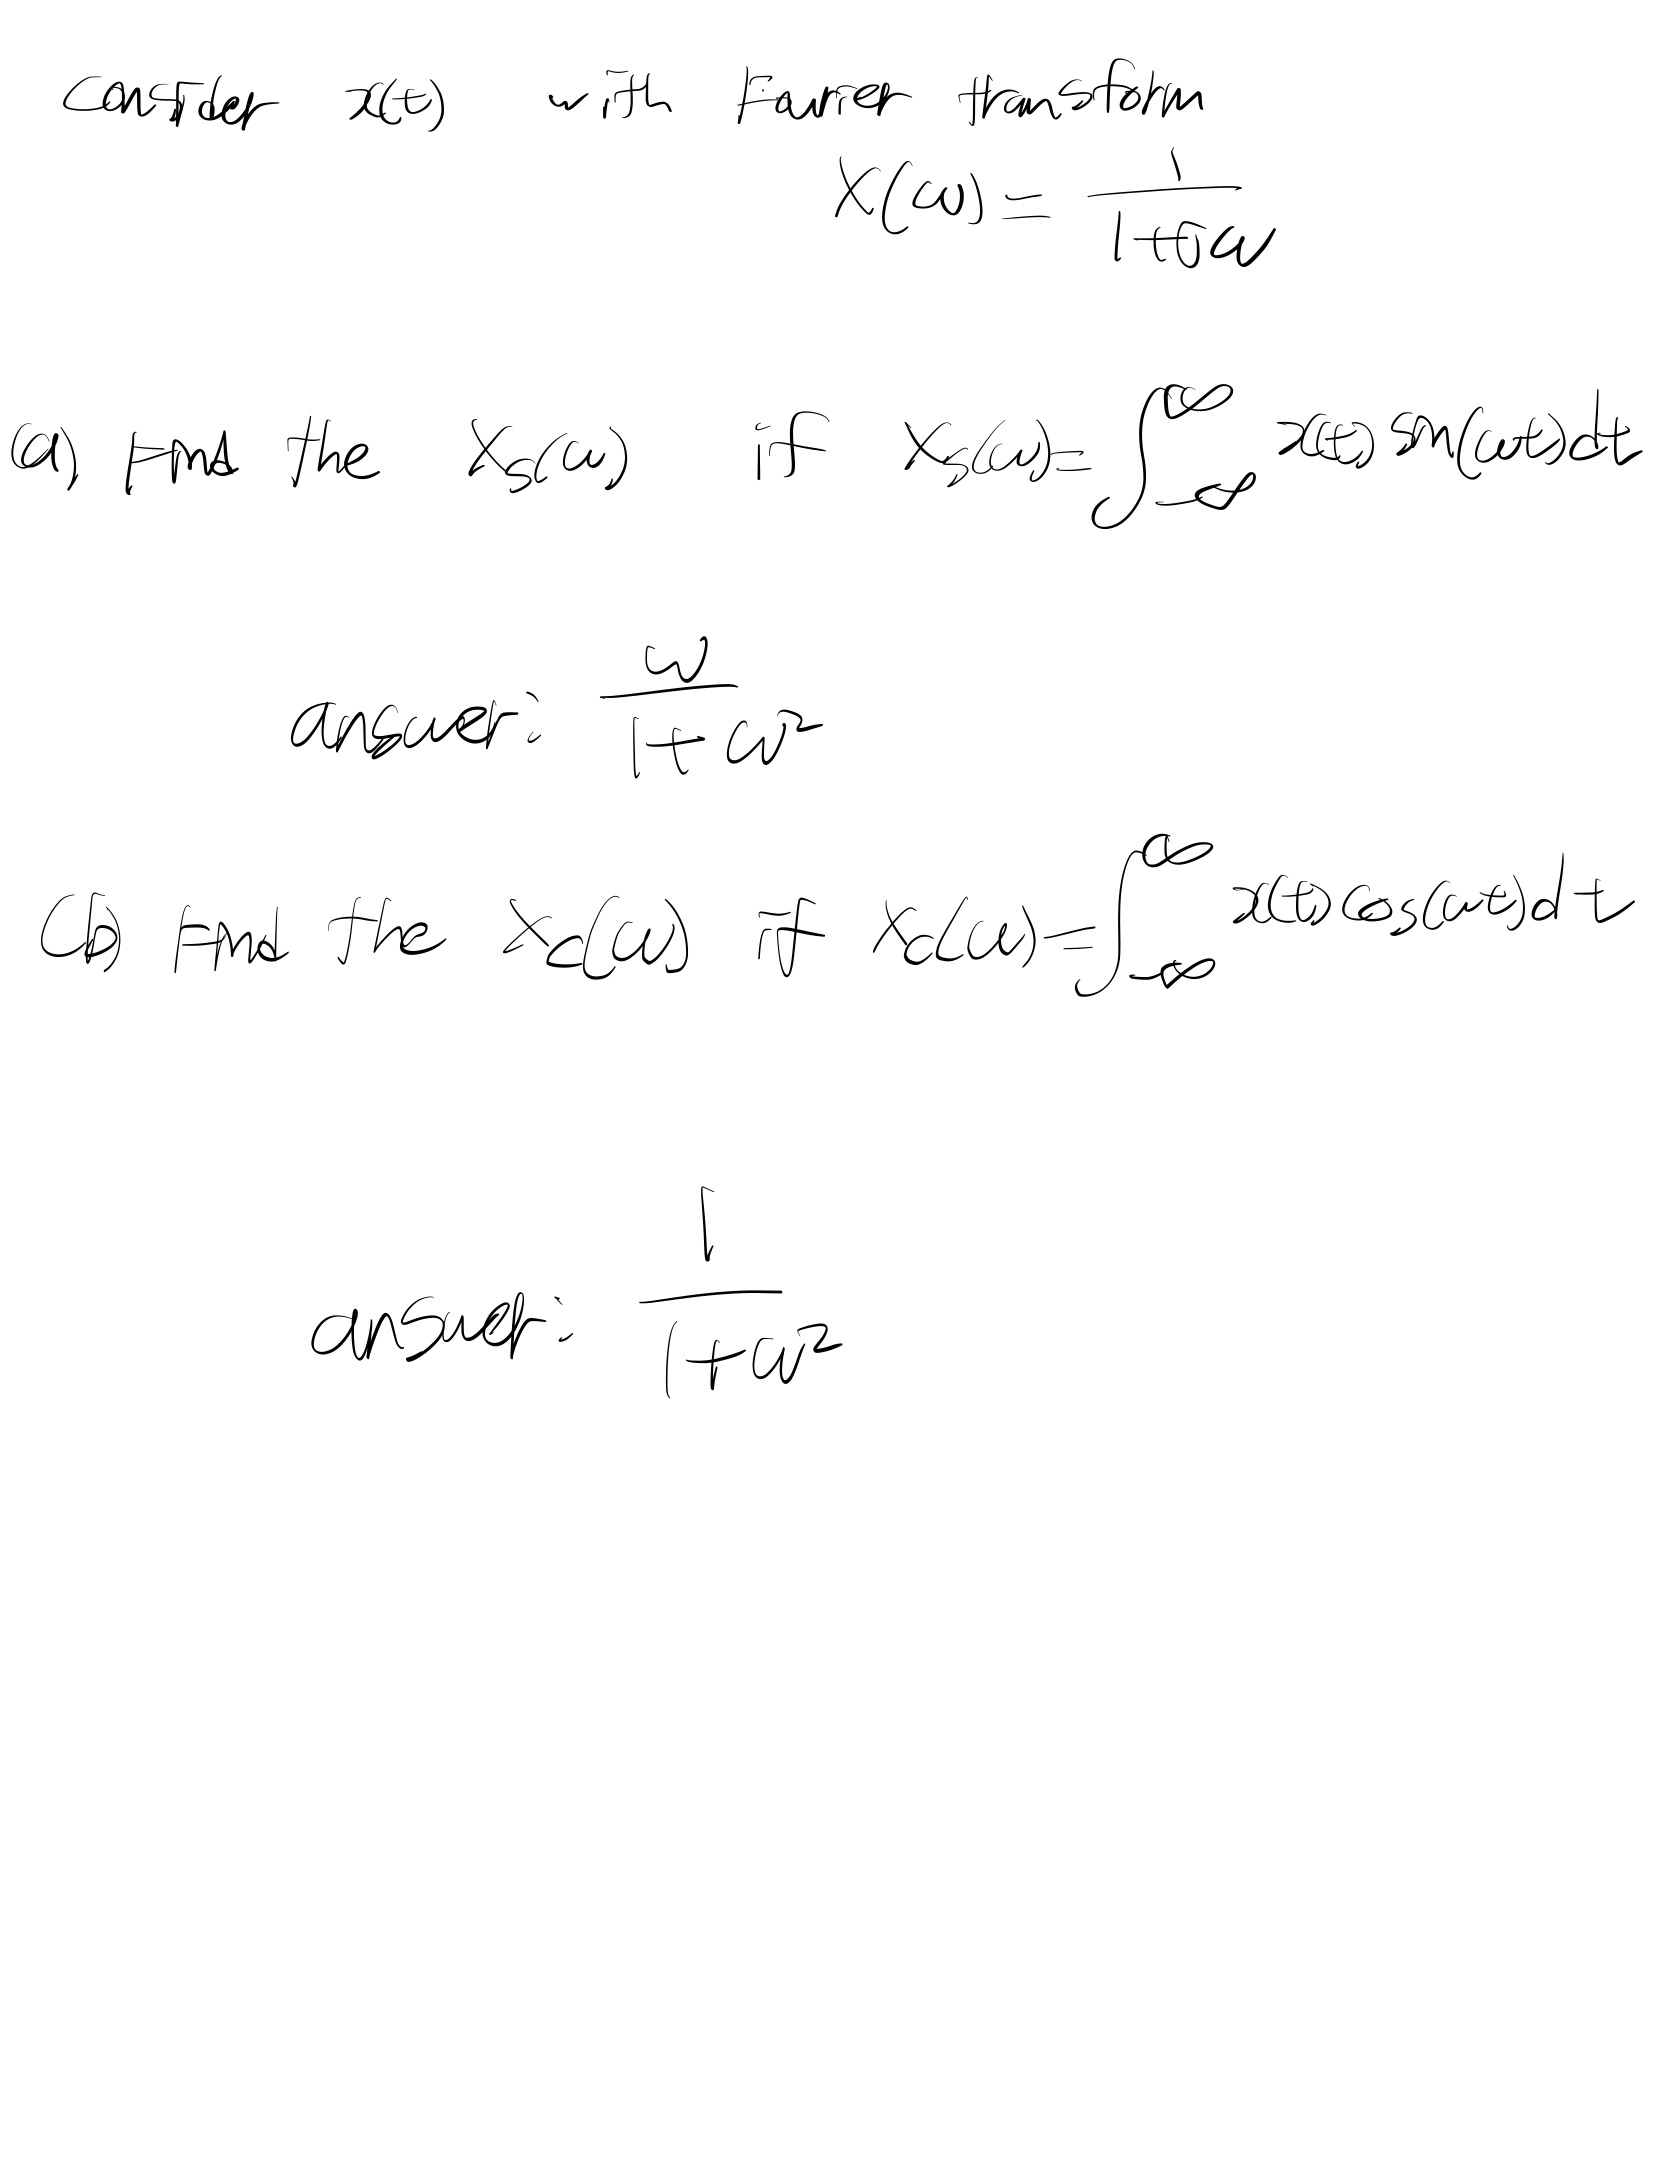 Consider x(t) with Fourier transform
X(ω) = 1/(1+jω)
(a) Find the Xs(ω) if Xs(ω) = ∫_{-∞}^{∞} x(t) sin(ωt) dt
answer: ω/(1+ω²)
(b) Find the Xc(ω) if Xc(ω) = ∫_{-∞}^{∞} x(t) cos(ωt) dt
answer: 1/(1+ω²)